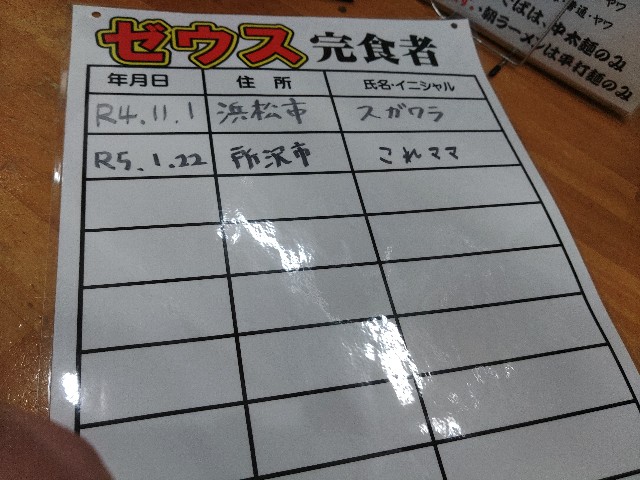 ゼウス完食者
年月日 住所 氏名・イニシャル
R4.11.1 浜松市 スガワラ
R5.1.22 所沢市 これママ
ばは、中太麺のみ
朝ラーメンは平打麺のみ